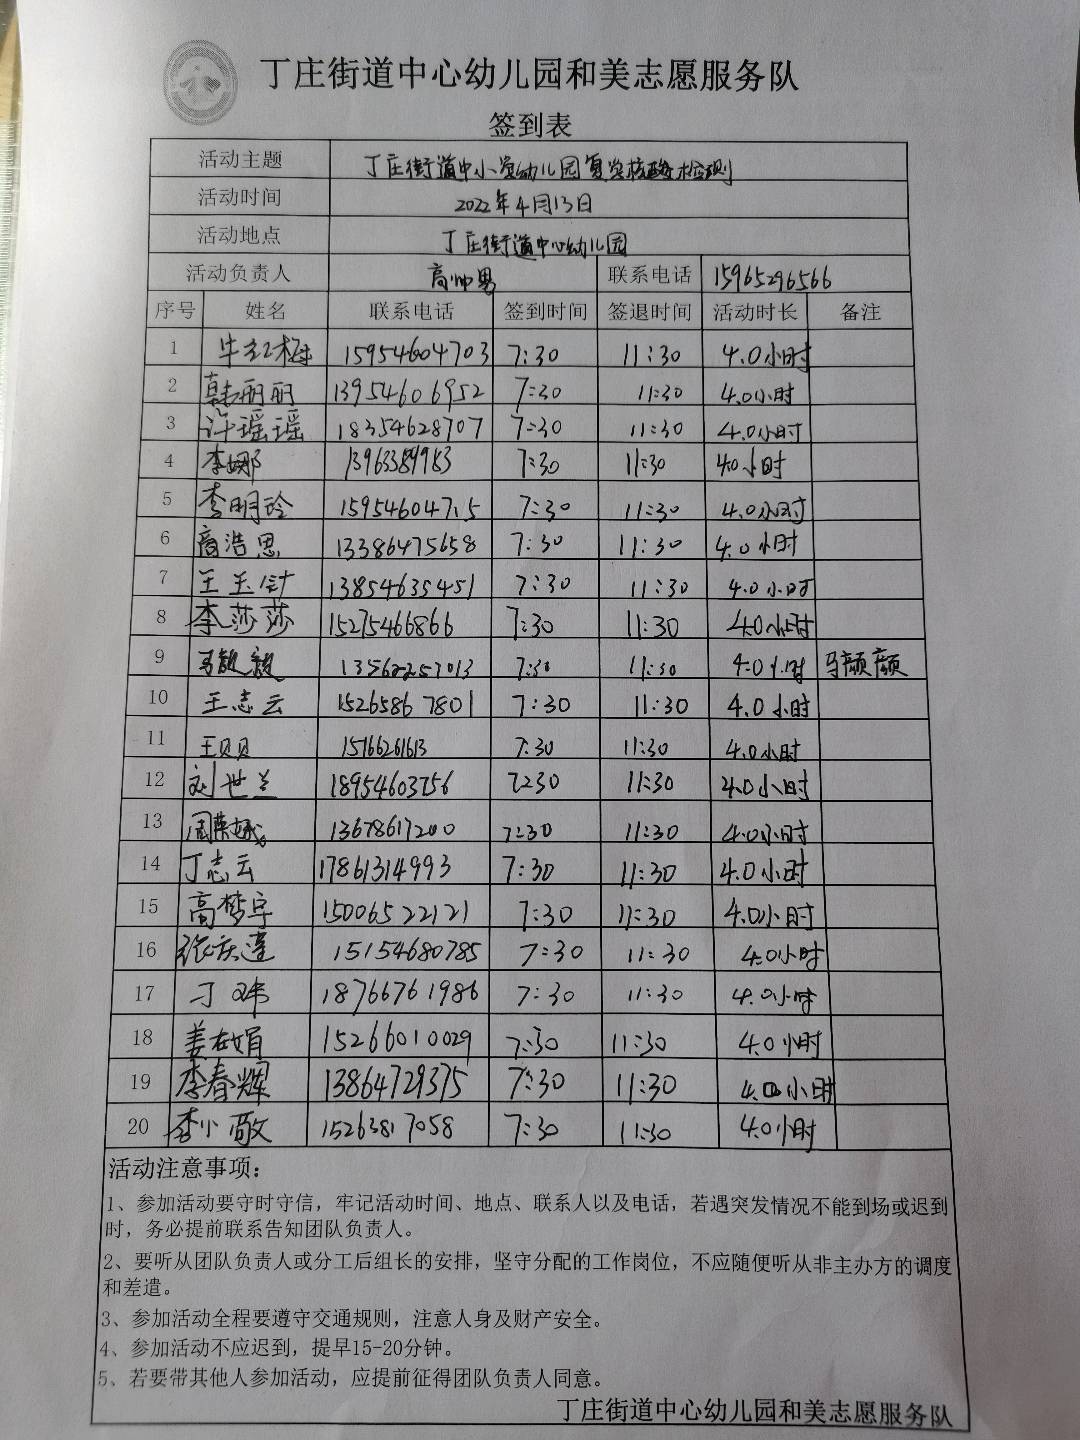 丁庄街道中心幼儿园和美志愿服务队
签到表
活动主题 丁庄街道中小学幼儿园复学核酸检测
活动时间 2022年4月13日
活动地点 丁庄街道中心幼儿园
活动负责人 高帅男 联系电话 15965296566
序号 姓名 联系电话 签到时间 签退时间 活动时长 备注
1 牛红梅 15954604703 7:30 11:30 4.0小时
2 韩丽丽 13954606952 7:30 11:30 4.0小时
3 许瑶瑶 18354628707 7:30 11:30 4.0小时
4 李娜 13963389983 7:30 11:30 4.0小时
5 李明玲 15954604715 7:30 11:30 4.0小时
6 商浩思 13386475658 7:30 11:30 4.0小时
7 王玉针 13854635451 7:30 11:30 4.0小时
8 李莎莎 15215466866 7:30 11:30 4.0小时
9 7:30 11:30 4.0小时 马颜颜
10 王志云 15265867801 7:30 11:30 4.0小时
11 王贝贝 15166261613 7:30 11:30 4.0小时
12 刘世兰 18954603756 7:30 11:30 4.0小时
13 周荣娥 13678617200 7:30 11:30 4.0小时
14 丁志云 17861314993 7:30 11:30 4.0小时
15 高梦宇 15006522121 7:30 11:30 4.0小时
16 张庆莲 15154680785 7:30 11:30 4.0小时
17 丁玮 18766761986 7:30 11:30 4.0小时
18 姜在娟 15266010029 7:30 11:30 4.0小时
19 李春辉 13864729375 7:30 11:30 4.0小时
20 李小敬 15263817058 7:30 11:30 4.0小时
活动注意事项：
1、参加活动要守时守信，牢记活动时间、地点、联系人以及电话，若遇突发情况不能到场或迟到
时，务必提前联系告知团队负责人。
2、要听从团队负责人或分工后组长的安排，坚守分配的工作岗位，不应随便听从非主办方的调度
和差遣。
3、参加活动全程要遵守交通规则，注意人身及财产安全。
4、参加活动不应迟到，提早15-20分钟。
5、若要带其他人参加活动，应提前征得团队负责人同意。
丁庄街道中心幼儿园和美志愿服务队